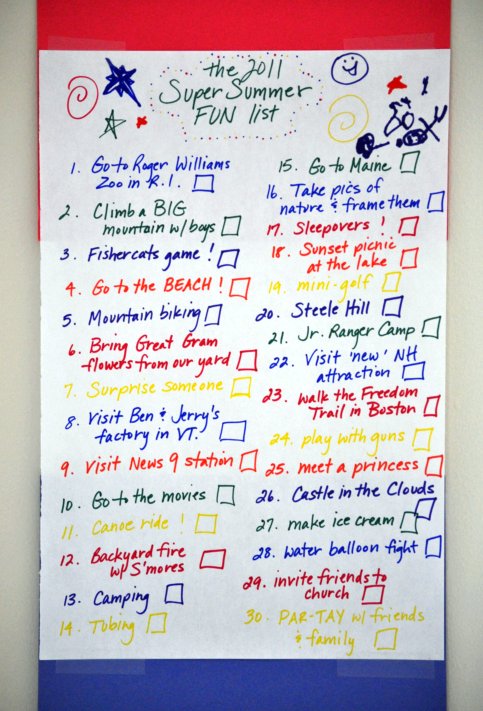 the 2011
Super Summer
FUN list
1. Go to Roger Williams
Zoo in R.I.
2. Climb a BIG
mountain w/ boys
3. Fishercats game!
4. Go to the BEACH!
5. Mountain biking
6. Bring Great Gram
flowers from our yard
7. Surprise someone
8. Visit Ben & Jerry's
factory in VT.
9. Visit News 9 station
10. Go to the movies
11. Canoe ride!
12. Backyard fire
w/ S'mores
13. Camping
14. Tubing
15. Go to Maine
16. Take pics of
nature & frame them
17. Sleepovers!
18. Sunset picnic
at the lake
19. mini-golf
20. Steele Hill
21. Jr. Ranger Camp
22. Visit 'new' NH
attraction
23. walk the Freedom
Trail in Boston
24. play with guns
25. meet a princess
26. Castle in the Clouds
27. make ice cream
28. water balloon fight
29. invite friends to
church
30. PAR-TAY w/ friends
& family